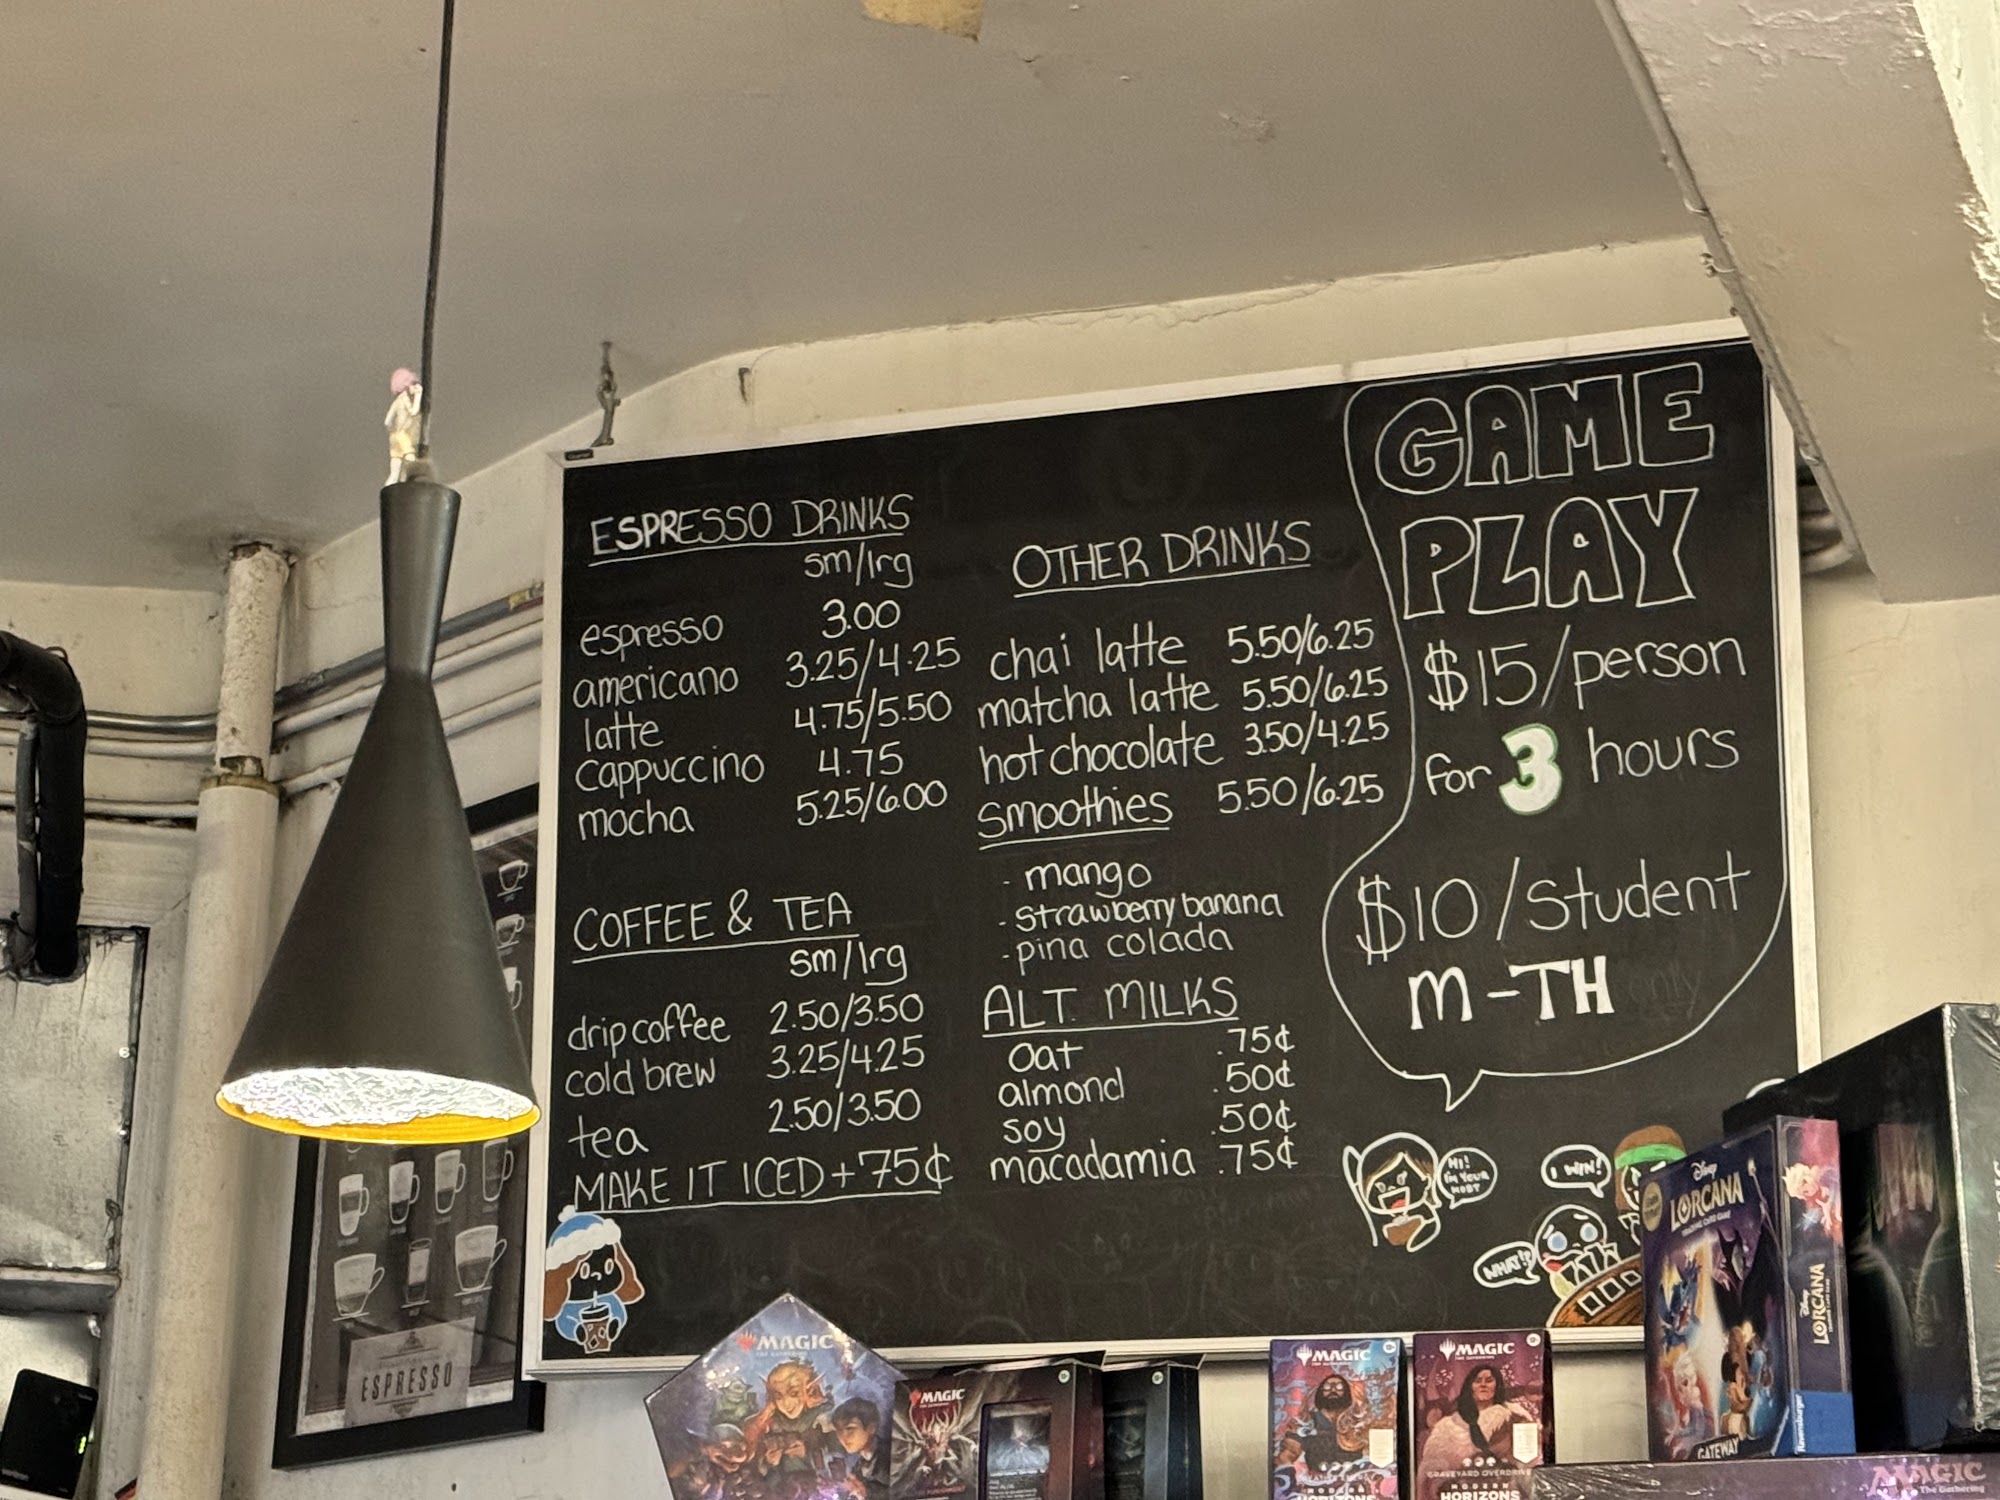 ESPRESSO DRINKS
sm/lrg
espresso 3.00
americano 3.25/4.25
latte 4.75/5.50
cappuccino 4.75
mocha 5.25/6.00
COFFEE & TEA
sm/lrg
drip coffee 2.50/3.50
cold brew 3.25/4.25
tea 2.50/3.50
MAKE IT ICED + 75¢
OTHER DRINKS
chai latte 5.50/6.25
matcha latte 5.50/6.25
hot chocolate 3.50/4.25
smoothies 5.50/6.25
- mango
- strawberry banana
- pina colada
ALT. MILKS
oat .75¢
almond .50¢
soy .50¢
macadamia .75¢
GAME
PLAY
$15/person
for 3 hours
$10/student
M-TH only
HI!
I'M YOUR
HOST
I WIN!
WHAT!?
ESPRESSO
MAGIC
THE GATHERING
MAGIC
MAGIC
MODERN
HORIZONS
MAGIC
GRAVEYARD OVERDRIVE
MODERN
HORIZONS
Disney
LORCANA
GATEWAY
Disney
LORCANA
Ravensburger
MAGIC
The Gathering